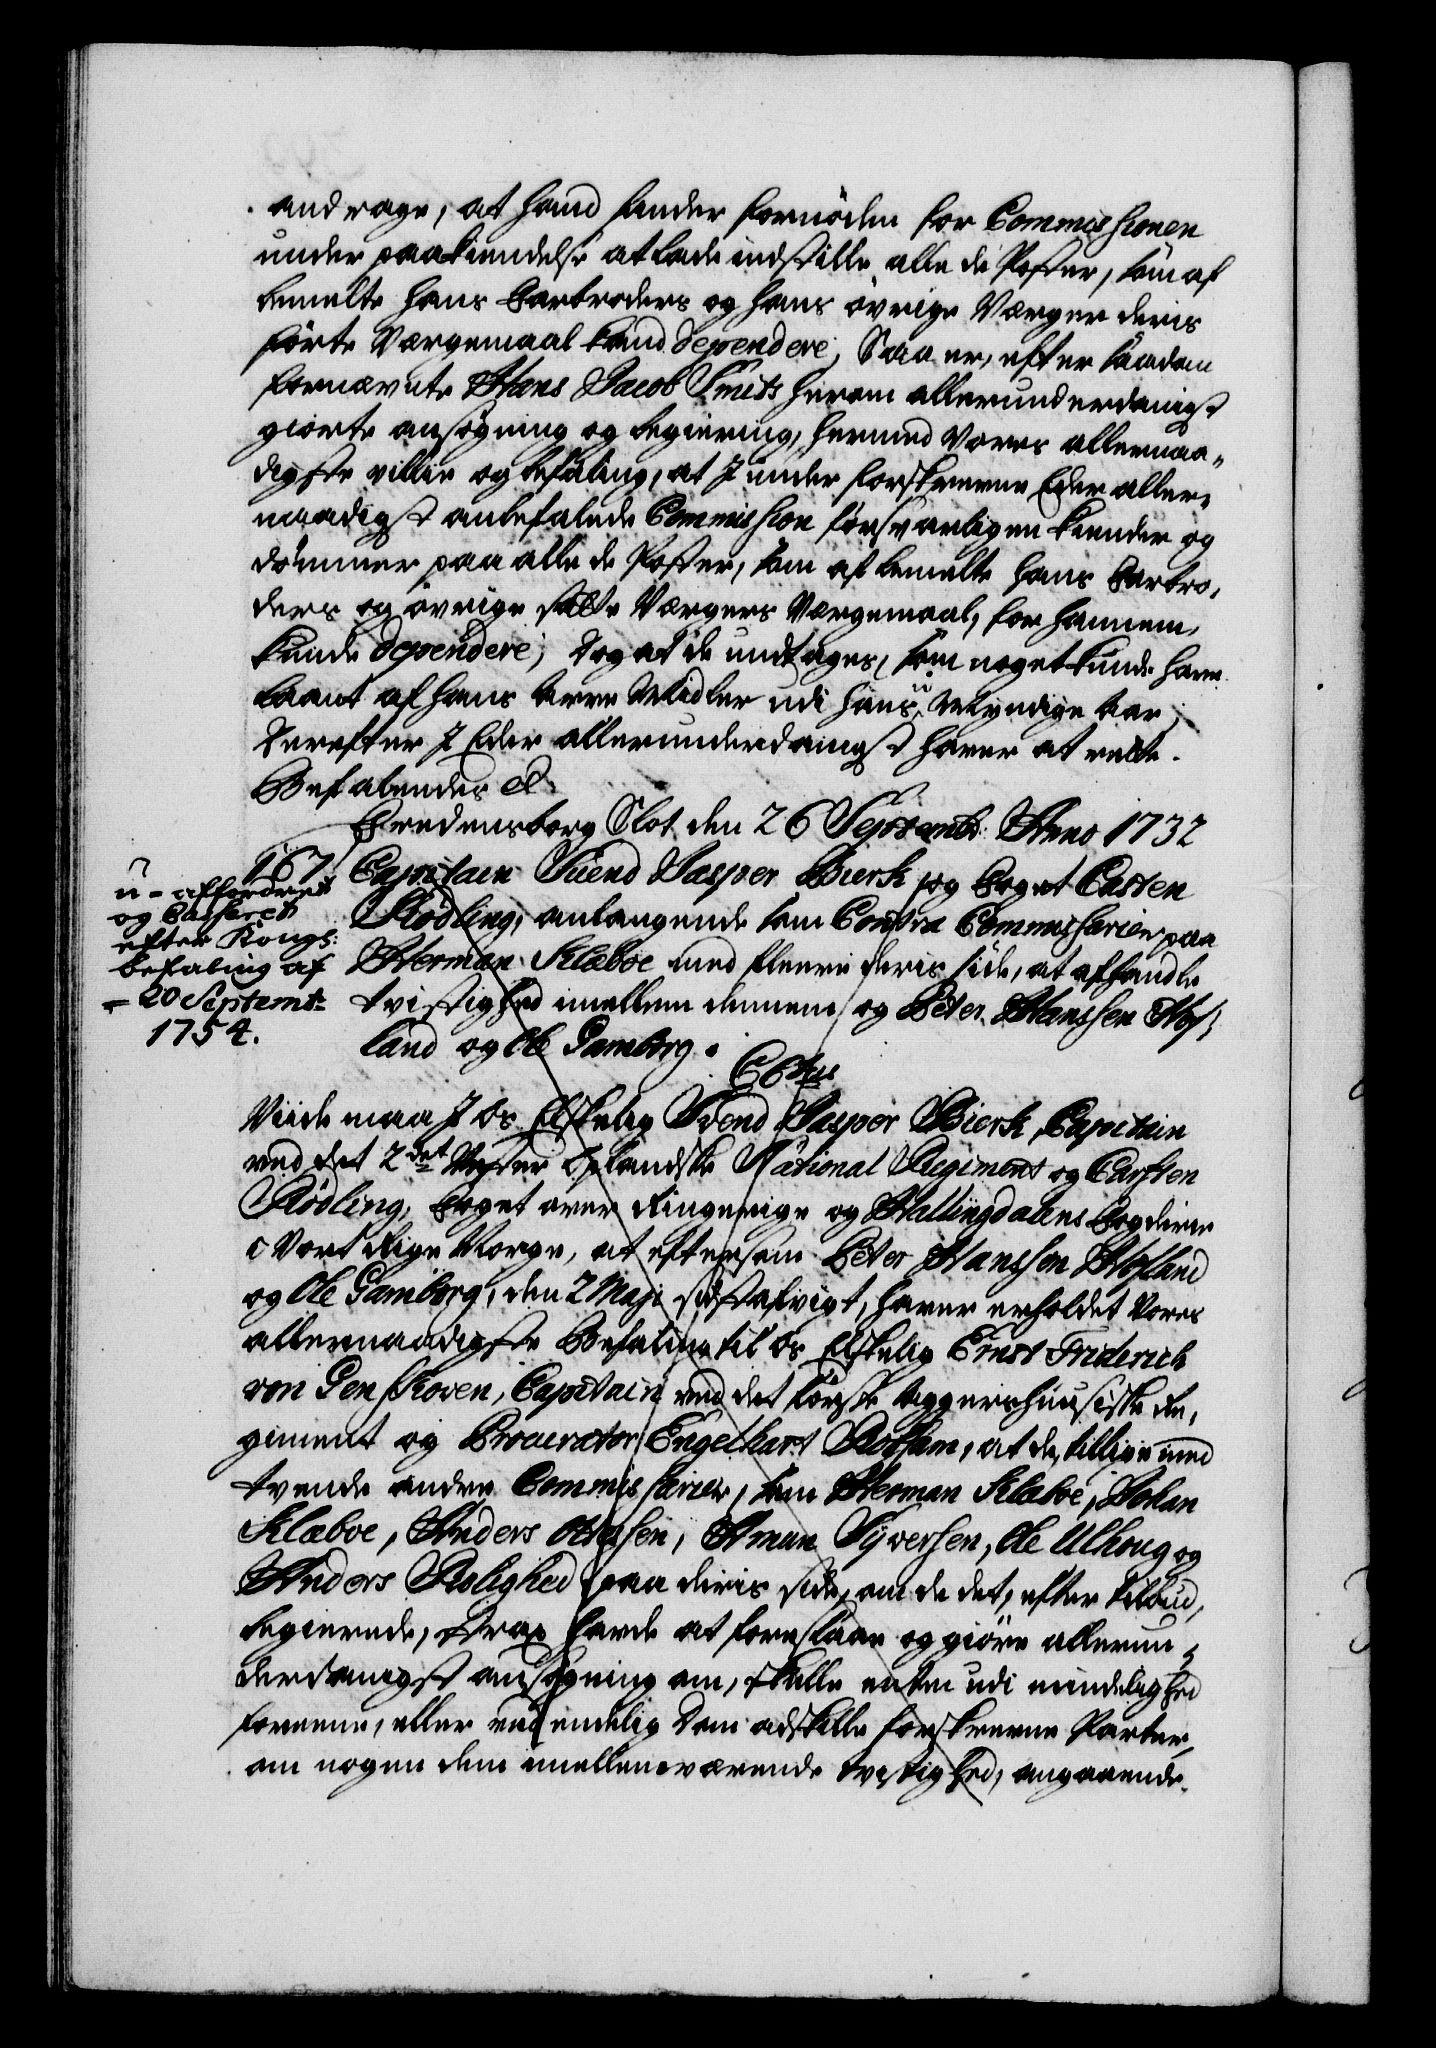 andrage, at hand finder fornöden for Commissionen
under paakiendelse at lade indstille alle de Poster, som af
bemelte hans Farbroders og hans övrige Værger deris
förte Værgemaal kand dependere; Saa er, efter saadan
fornævnte Hans Jacob Smits herom allerunderdanigst
giorte ansögning og begiering, hermed Vores allernaa-
digste villie og befaling, at I under forskrevne Eder aller-
naadigst anbefalede Commission forsvarligen kiender og
dömmer paa alle de Poster, som af bemelte hans Farbro-
ders og övrige Værgers Værgemaal, for hannem,
kunde dependere; dog at de undtages, som noget kunde have
laant af hans Arve Midler udi hans u-Myndige Aar;
Derefter I Eder allerunderdanigst haver at rette.
Befalendes &
Fredensborg Slot den 26 Septembr: Anno 1732
167
Capitain Suend Jasper Bierk og Foget Casten
Rödling, anlangende som Contra Commissarier paa
Herman Klæboe med fleere deris side, at afhandle
tvistighed imellem dennem og Peter Hanssen Hof-
land og Ole Gamborg.
u-affordret
og Casseret
efter Kongs:
befaling af
20 Septembr
1754.
C 6tus
Viide maa I Os Elskelig Svend Jasper Bierk, Capitain
ved det 2det Vester Oplandske National Regiment og Carsten
Rödling, Foget over Ringerige og Hallingdalens Fogderie
i Vort Rige Norge, at eftersom Peter Hanssen Hofland
og Ole Gamborg, den 2 Maji sidstafvigt, haver erholdet Vores
allernaadigste Befaling til Os Elskelig Ernst Friderich
von Genskoven, Capitain ved det förste Aggershuusiske Re-
giment og Procurator Engelhart Rotham, at de, tillige med
tvende andre Commissarier, som Herman Klæboe, Johan
Klæboe, Anders Olessen, Aman Syversen, Ole Ulhoug og
Anders Rolighed paa deris side, om de det, efter tilbud,
begierede, strax havde at foreslaae og giöre allerun-
derdanigst ansögning om, skulle enten udi mindelighed
foreene, eller ved endelig Dom adskille forskrevne Parter,
om nogen dem imellemværende tvistighed, angaaende